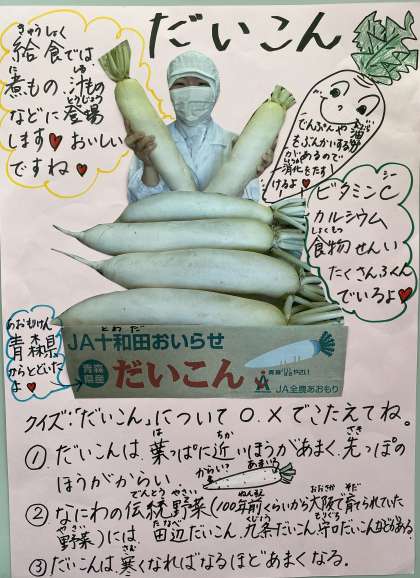 だいこん
給食では
きゅうしょく
煮もの、汁もの
に しる
などに登場
とうじょう
します♥おいしい
ですね♥
でんぷんや
をぶんかいする
があるので
消化をたす
けるよ♥
ビタミンC
シー
カルシウム
食物せんい
しょくもつ
たくさんふくん
でいるよ♥
あおもりけん
青森県
からとどいた
よ♥
とわだ
JA十和田おいらせ
青森
県産
だいこん
JA全農あおもり
クイズ:「だいこん」について○、×でこたえてね。
① だいこんは、葉っぱに近いほうがあまく、先っぽの
は ちか さき
ほうがからい。
からい? あまい?
② なにわの伝統野菜(100年前くらいから大阪で育てられていた
でんとう やさい ねんまえ おおさか そだ
野菜)には、田辺だいこん、九条だいこん、守口だいこんなどがある。
やさい たなべ くじょう もりぐち
③ だいこんは寒くなればなるほどあまくなる。
さむ